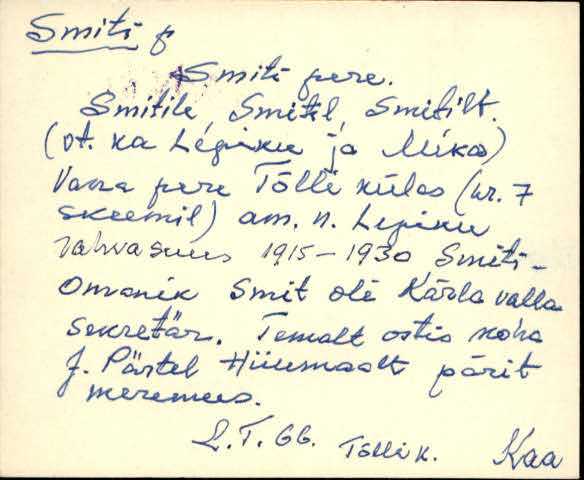 Smiti p
Smiti pere.
Smitile, Smitil, Smitilt.
(vt. ka Lepiku ja Mika)
Vana pere Tõlli külas (nr. 7
skeemil) am. n. Lepiku
rahvasuus 1915-1930 Smiti-
Omanik Smit oli Kärla valla
sekretär. Temalt ostis koha
J. Pärtel Hiiumaalt pärit
meremees.
L.T. 66. Tõlli k. Kaa